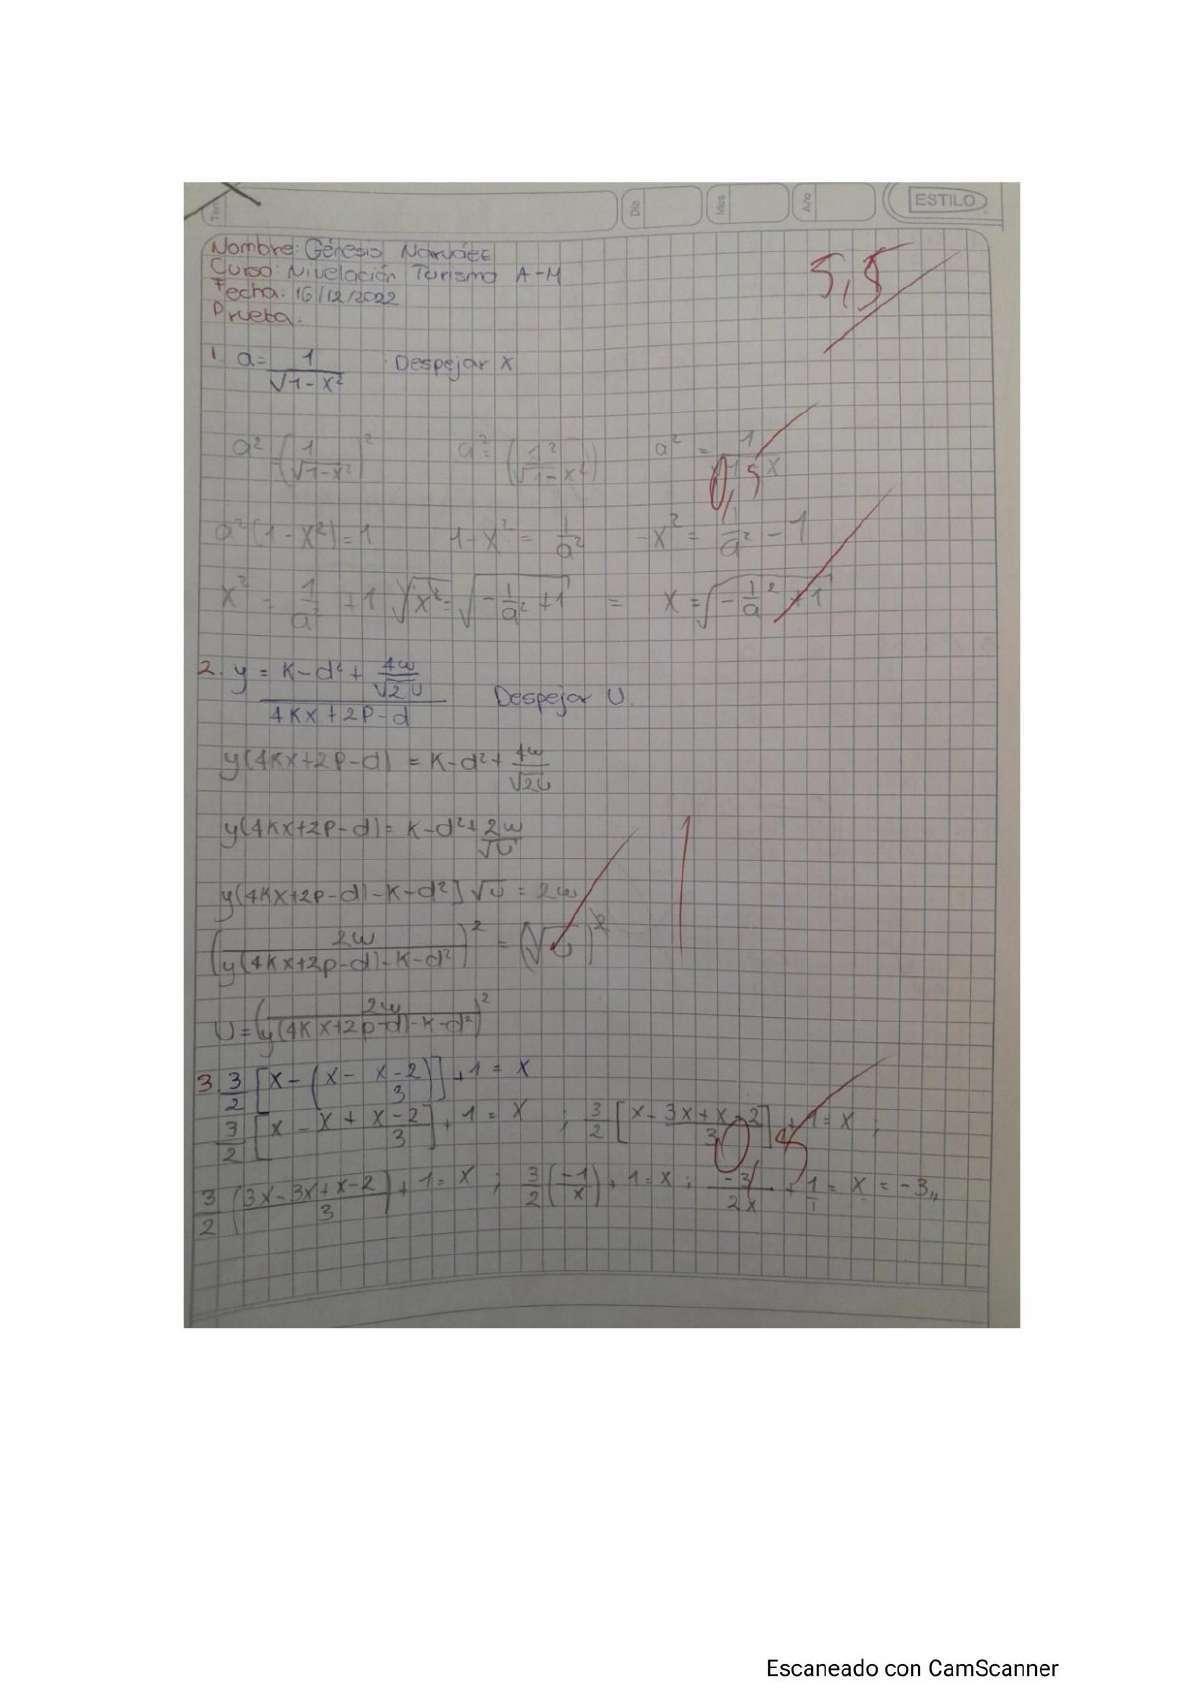 Tema
Día
Mes
Año
ESTILO
Nombre: Génesis Narváez
Curso: Nivelación Turismo A-M
Fecha: 16/12/2022
Prueba.
5,5
1. a = 1/√(1-x²) Despejar x
a² (1/√(1-x²))² a² = (1²/√(1-x²)) a² = 1
0,5
a²(1-x²)=1 1-x² = 1/a² -x² = 1/a² - 1
x² = 1/a² +1 √x² = √(-1/a² +1) = x = √(-1/a² +1)
2. y = (K-d² + 4w/√2U)/(4Kx+2P-d) Despejar U.
y(4Kx+2P-d) = K-d²+ 4w/√2U
y(4Kx+2P-d)= K-d²+ 2w/√U
1
y(4Kx+2p-d)-K-d²]√U = 2w
(2w/(y(4Kx+2p-d)-K-d²))² = (√U)²
U=(2w/(y(4Kx+2p-d)-K-d²))²
3 3/2 [x-(x- x-2/3)]+1 = x
3/2 [x - x + x-2/3]+1 = x ; 3/2 [x- 3x+x-2/3]+1=x ;
0,5
3/2 (3x-3x+x-2/3)+1=x ; 3/2 (-1/x)+1=x ; -3/2x + 1/1 = x = -3,,
Escaneado con CamScanner